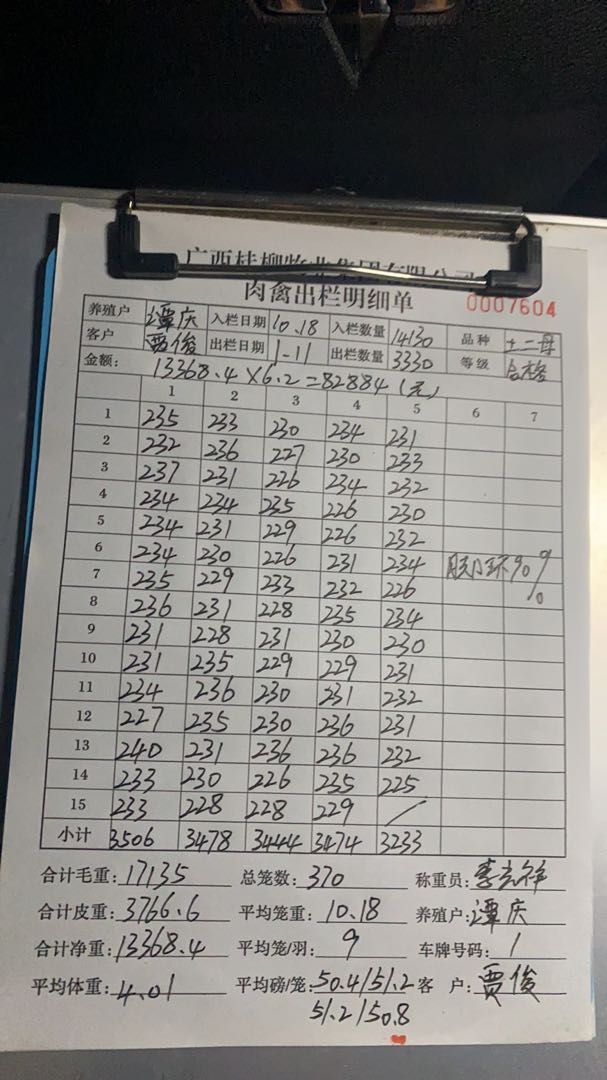 广西桂柳牧业集团有限公司
肉禽出栏明细单 0007604
养殖户 谭庆 入栏日期 10.18 入栏数量 14130 品种 土二母
客户 贾俊 出栏日期 1-11 出栏数量 3330 等级 合格
金额: 13368.4×6.2=82884(元)
1 2 3 4 5 6 7
1 235 233 230 234 231
2 232 236 227 230 233
3 237 231 226 234 232
4 234 234 235 226 230
5 234 231 229 226 232
6 234 230 226 231 234 脚环90%
7 235 229 233 232 226
8 236 231 228 235 234
9 231 228 231 230 230
10 231 235 229 229 231
11 234 236 230 231 232
12 227 235 230 236 231
13 240 231 236 236 232
14 233 230 226 235 225
15 233 228 228 229 /
小计 3506 3478 3444 3474 3233
合计毛重: 17135 总笼数: 370 称重员:
合计皮重: 3766.6 平均笼重: 10.18 养殖户: 谭庆
合计净重: 13368.4 平均笼/羽: 9 车牌号码: 1
平均体重: 4.01 平均磅/笼: 50.4/51.2 客 户: 贾俊
51.2/50.8